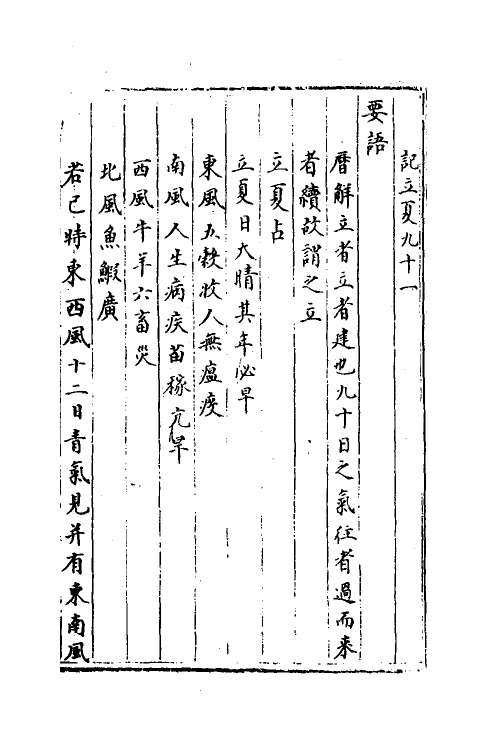 記立夏九十一
要語
曆解立者立者建也九十日之氣往者過而来
者續故謂之立
立夏占
立夏日大晴其年必旱
東風五穀收人無瘟疫
南風人生病疾苗稼亢旱
西風牛羊六畜災
北風魚鰕廣
若已時東西風十二日青氣見并有東南風